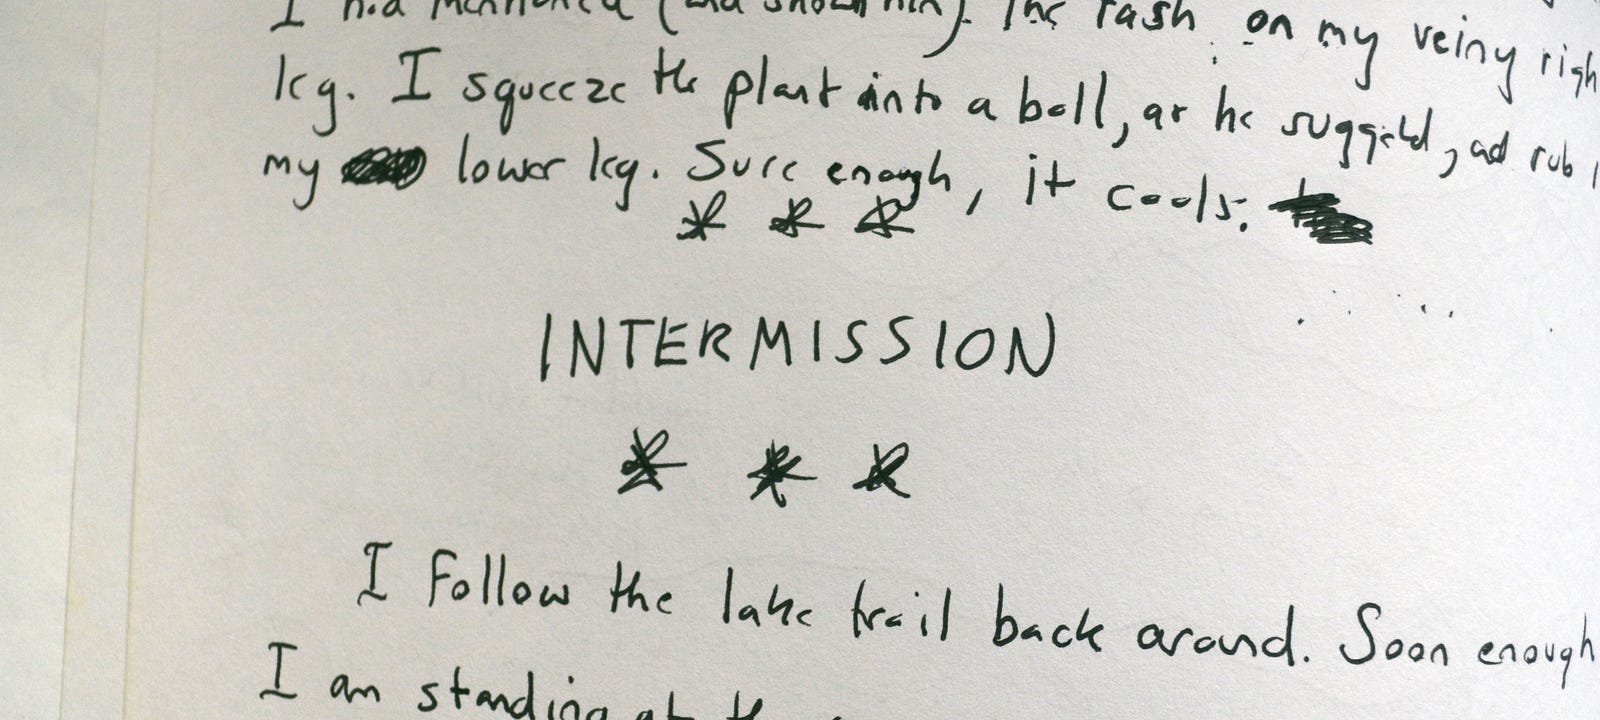 I had mentioned (and shown him). The rash on my veiny righ
leg. I squeeze the plant into a ball, as he suggested, and rub
my lower leg. Sure enough, it cools.
* * *
INTERMISSION
* * *
I follow the lake trail back around. Soon enough
I am standing at the